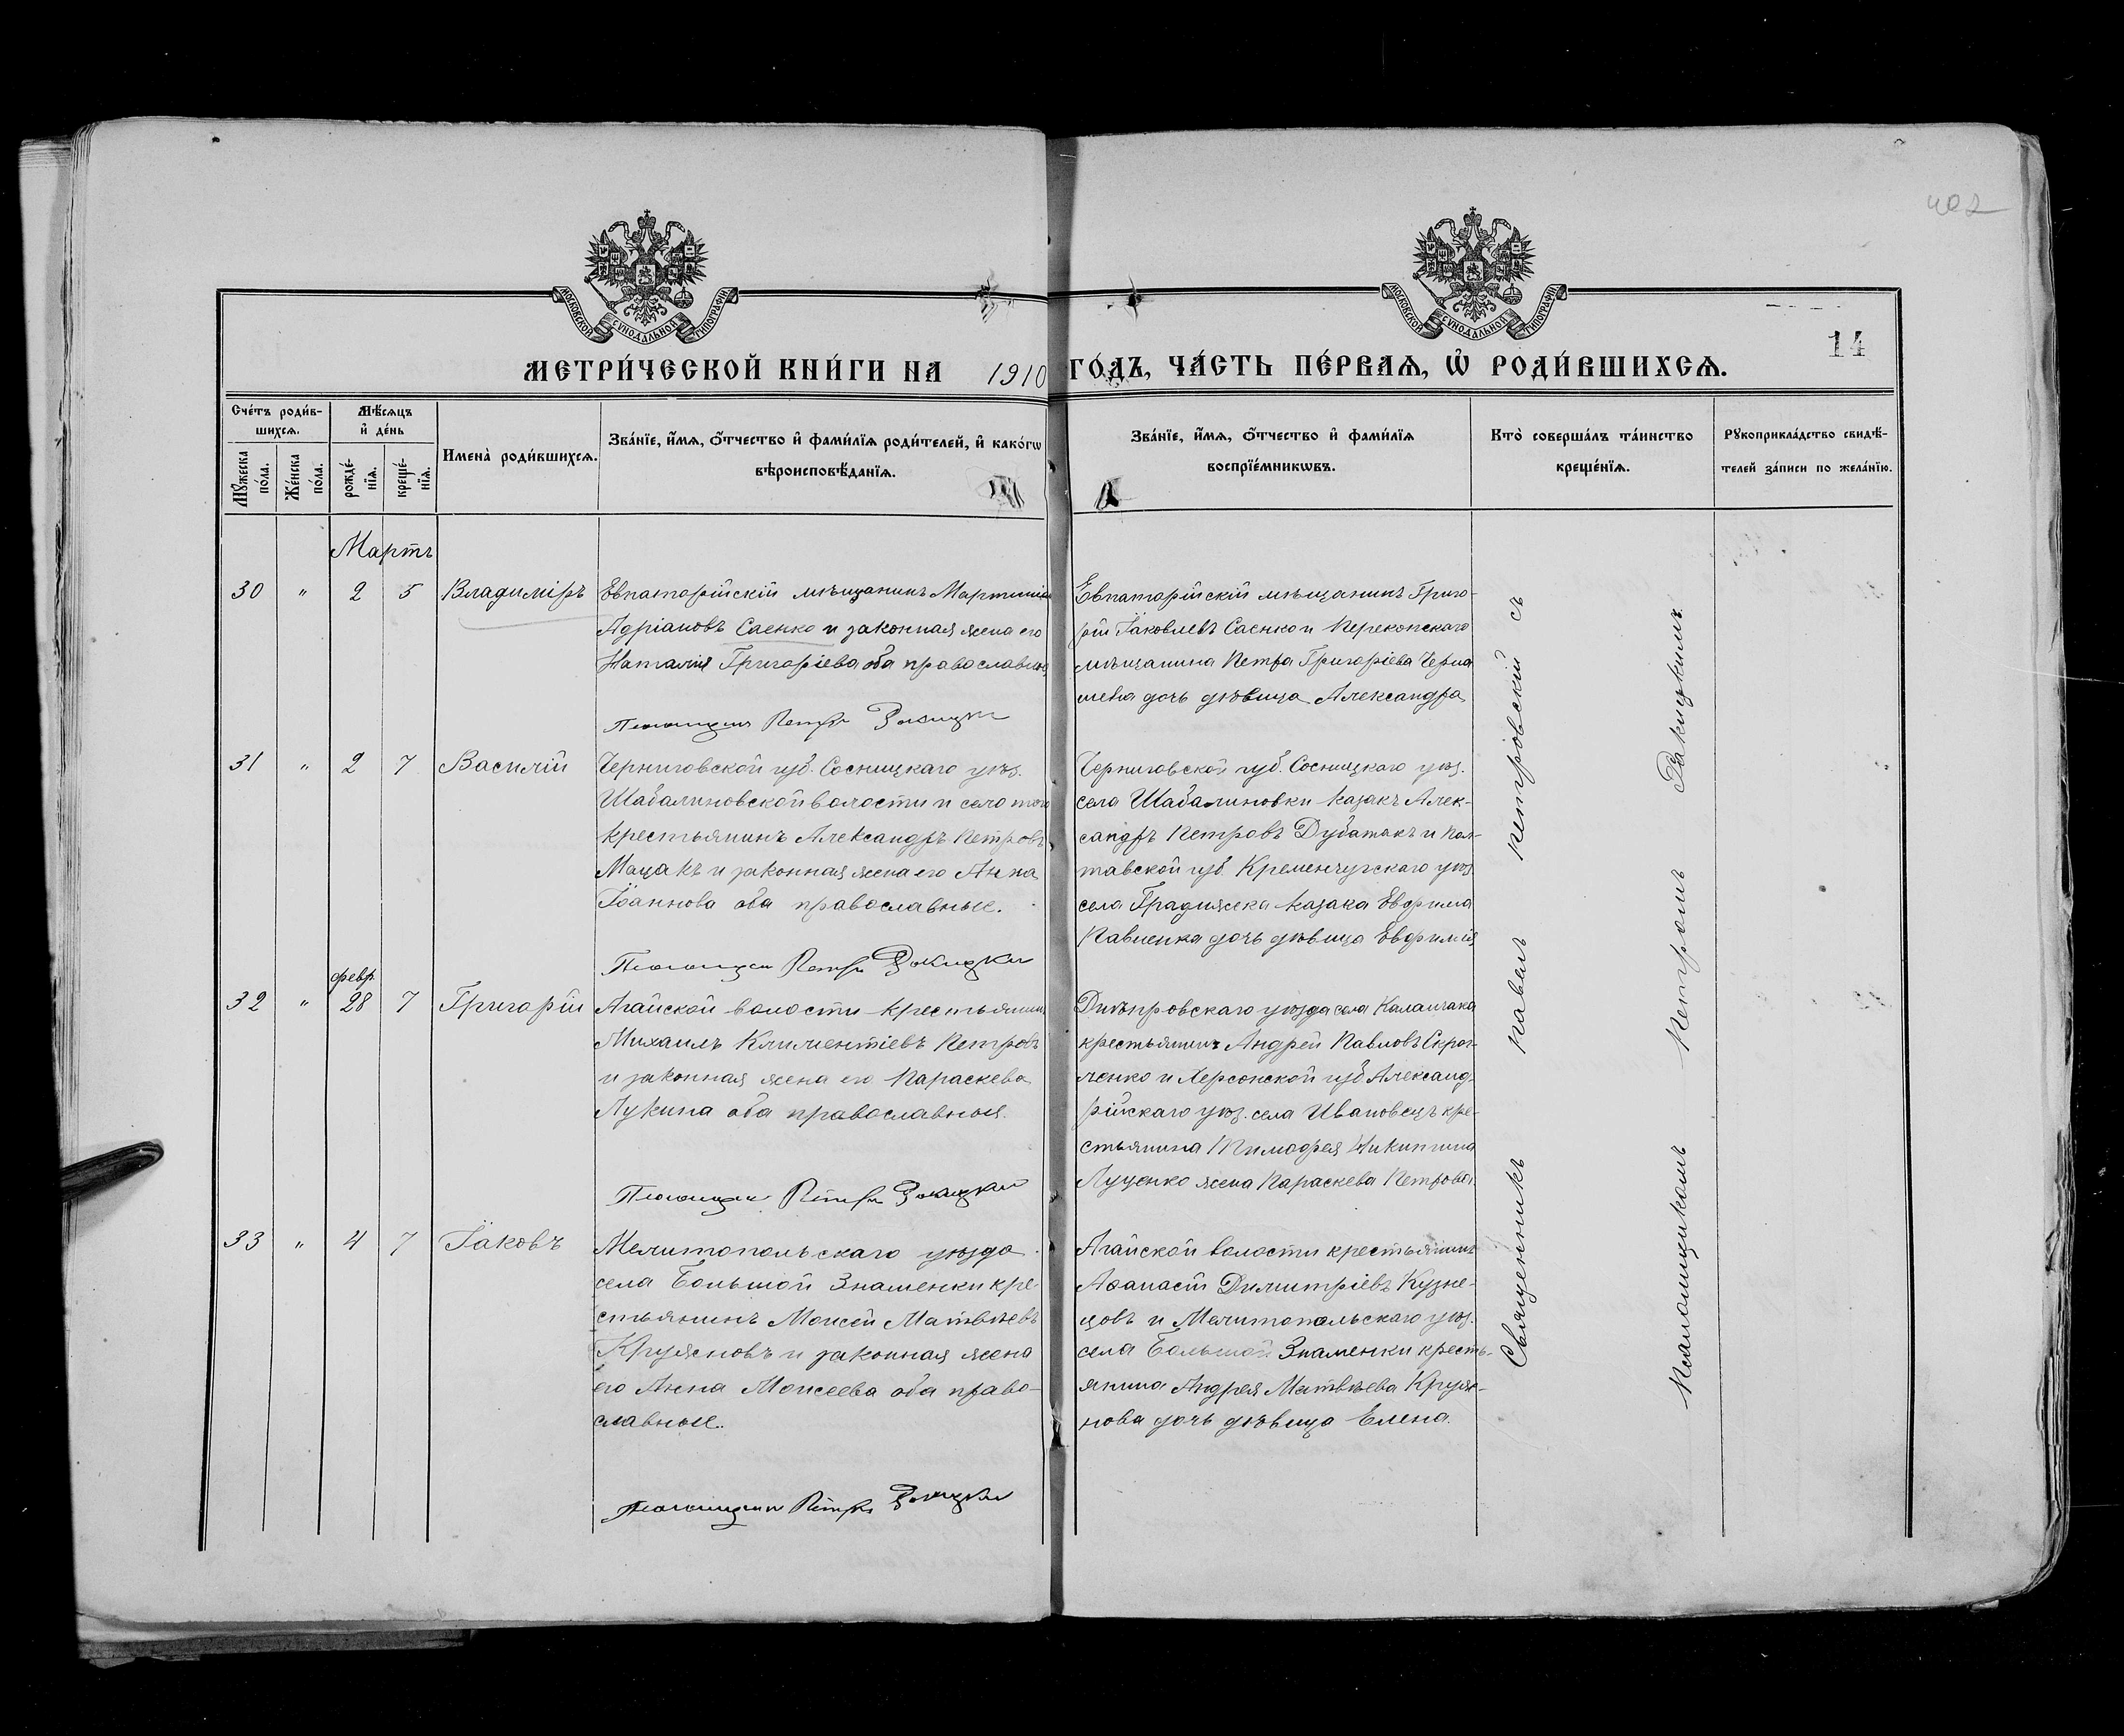 402
МОСКОВСКОЙ СУНОДАЛЬНОЙ ТИПОГРАФІИ
МОСКОВСКОЙ СУНОДАЛЬНОЙ ТИПОГРАФІИ
14
МЕТРИ́ЧЕСКОЙ КНИ́ГИ НА 1910 ГО́ДЪ, ЧА́СТЬ ПЕ́РВАѦ, Ѡ҆ РОДИ́ВШИХСѦ.
Сче́тъ роди́в-
шихсѧ.
Мѣ́сѧцъ
и҆ де́нь
Мꙋ́жеска
по́ла.
Же́нска
по́ла.
рожде́-
нїѧ.
креще́-
нїѧ.
Имена̀ роди́вшихсѧ.
Зва́нїе, и҆́мѧ, ѻ҆́тчество и҆ фами́лїѧ роди́телей, и҆ како́гѡ
вѣроисповѣ́данїѧ.
Зва́нїе, и҆́мѧ, ѻ҆́тчество и҆ фами́лїѧ
воспрїе́мникѡвъ.
Кто̀ соверша́лъ та́инство
креще́нїѧ.
Рꙋкоприкла́дство свидѣ́-
телей за́писи по жела́нїю.
Мартъ
30 " 2 5 Владиміръ
Евпаторійскій мѣщанинъ
Адріановъ Саенко и законная жена его
Наталія Григоріева оба православные
Псаломщикъ Петръ Ракицкій
Евпаторійскій мѣщанинъ Григо-
рій Іаковлевъ Саенко и Перекопскаго
мѣщанина Петра Григоріева Черна
шева дочь дѣвица Александра
31 " 2 7 Василій
Черниговской губ. Сосницкаго уѣз.
Шабалиновской волости и села того
крестьянинъ Александръ Петровъ
Мацакъ и законная жена его Анна
Іоаннова оба православные.
Псаломщикъ Петръ Ракицкій
Черниговской губ. Сосницкаго уѣз.
села Шабалиновки казакъ Алек-
сандръ Петровъ Дубатакъ и Пол-
тавской губ. Кременчугскаго уѣз.
села Градижска казака Евфима
Павленка дочь дѣвица Евфимія
февр
32 " 28 7 Григорій
Агайской волости крестьянинъ
Михаилъ Климентіевъ Петровъ
и законная жена его Параскева
Лукина оба православныя.
Псаломщикъ Петръ Ракицкій
Днѣпровскаго уѣзда села Каланчака
крестьянинъ Андрей Павловъ
ченко и Херсонской губ. Александ-
рійскаго уѣз. села Ивановецъ кре-
стьянина Тимофея Никитина
Луценко жена Параскева Петрова.
33 " 4 7 Іаковъ
Мелитопольскаго уѣзда
села Большой Знаменки кре-
стьянинъ Моисей Матвѣевъ
Кружновъ и законная жена
его Анна Моисеева оба право-
славные.
Псаломщикъ Петръ Ракицкій
Агайской волости крестьянинъ
Аѳанасій Димитріевъ Кузне-
цовъ и Мелитопольскаго уѣз.
села Большой Знаменки кресть-
янина Андрея Матвѣева Круж-
нова дочь дѣвица Елена.
Священникъ Павелъ Петровскій съ
псаломщикомъ Петромъ Ракицкимъ.